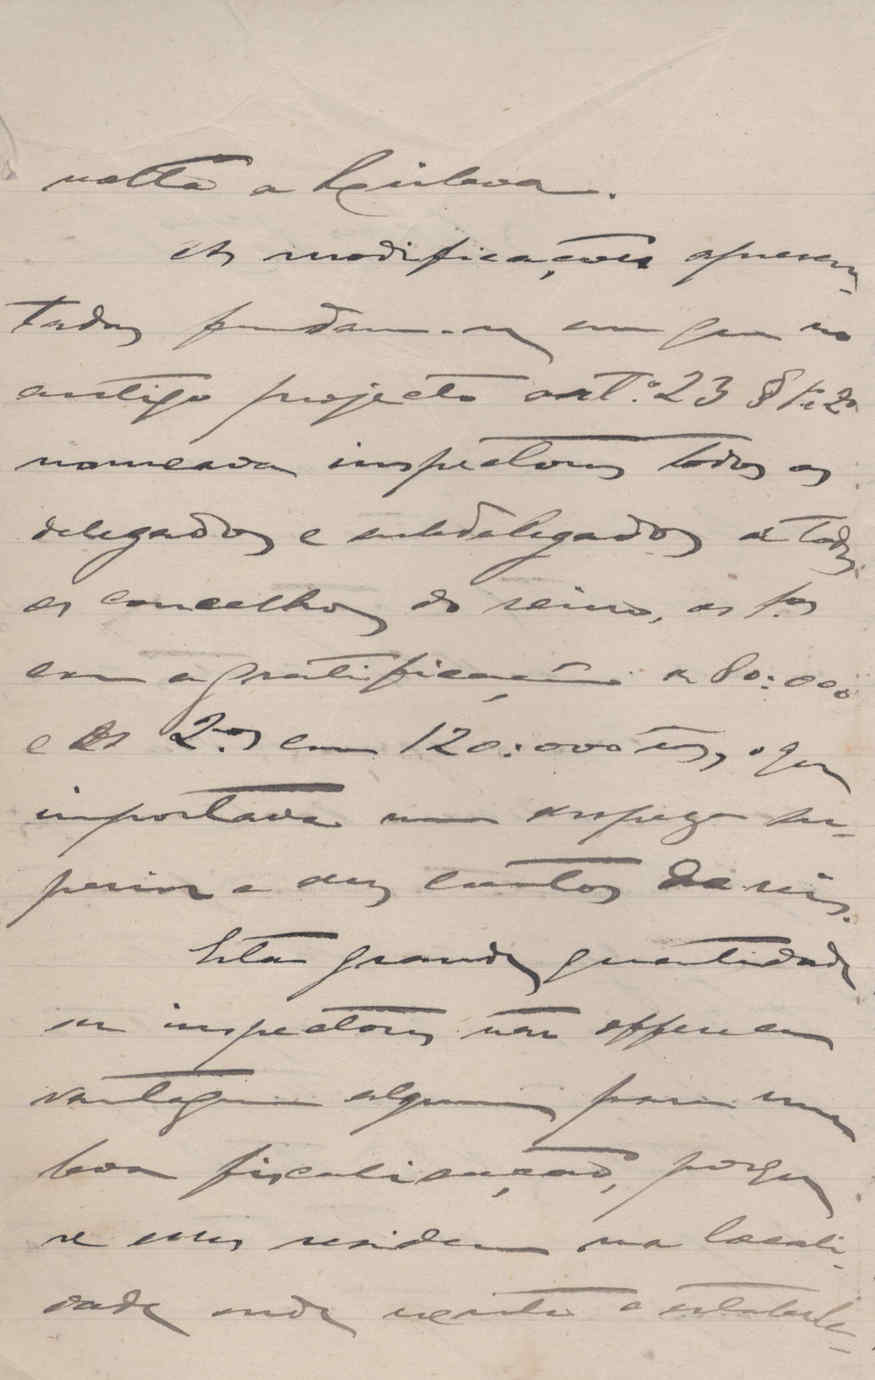 volta a Lisboa.
As modificações apresen-
tadas fundam-se em que no
antigo projecto art.º 23 § 1º e 2º
nomeava inspectores todos os
delegados e subdelegados de todos
os concelhos do reino, os 1.os
com a gratificação de 80:000
e os 2.os com 120:000 reis, o que
importava uma despeza su-
perior a dez contos de reis.
Esta grande quantidade
de inspectores não offerecem
vantagem alguma para uma
boa fiscalisação, porque
se elles residem na locali-
dade onde existe o estabele-